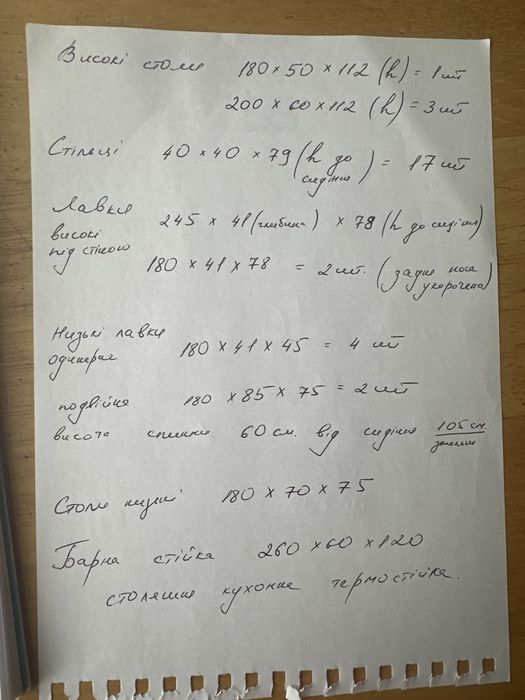 Високі столи 180 × 50 × 112 (h) = 1 шт
200 × 60 × 112 (h) = 3 шт
Стільці 40 × 40 × 79 (h до сидіння) = 17 шт
Лавки високі під стіною 245 × 41 (глибина) × 78 (h до сидіння)
180 × 41 × 78 = 2 шт. (задня нога укорочена)
Низькі лавки
одинарні 180 × 41 × 45 = 4 шт
подвійна 180 × 85 × 75 = 2 шт
висота спинки 60 см. від сидіння 105 см.
загальна
Столи низькі 180 × 70 × 75
Барна стійка 260 × 60 × 120
столешня кухонна термостійка.